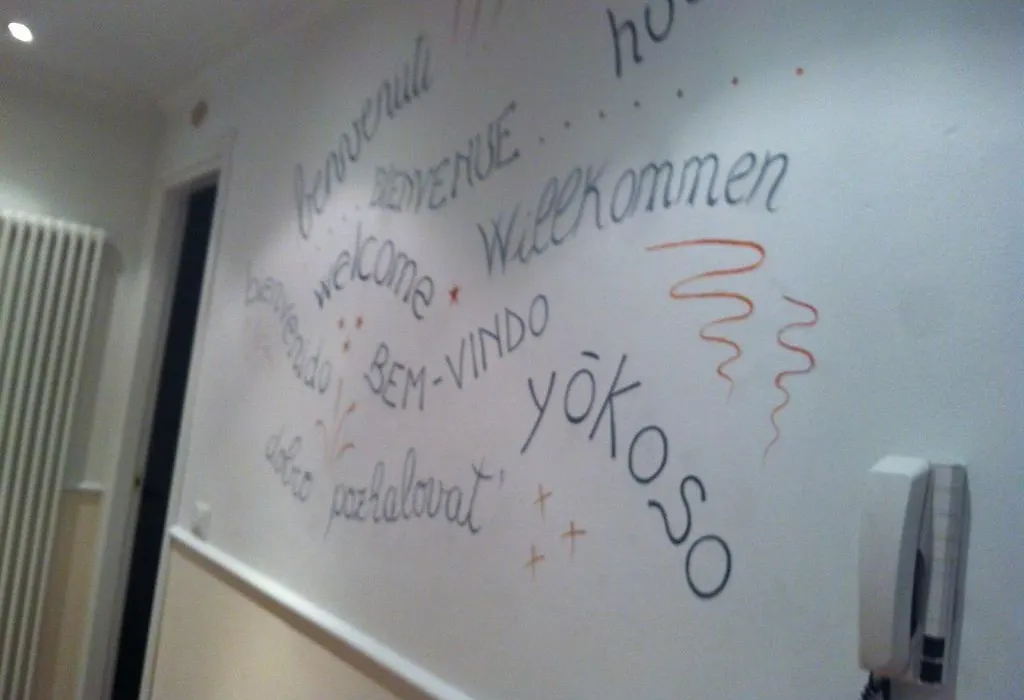 benvenuti
BIENVENUE......
Willkommen
welcome
bienvenido
BEM-VINDO
YŌKOSO
dobro pozhalovat'